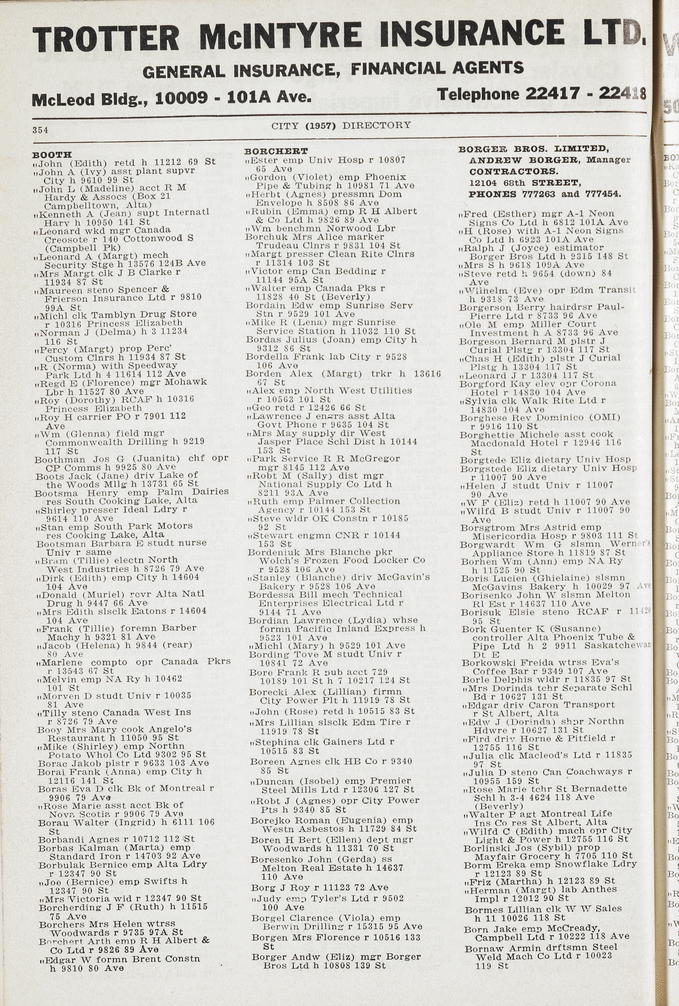 TROTTER McINTYRE INSURANCE LTD.
GENERAL INSURANCE, FINANCIAL AGENTS
McLeod Bldg., 10009 - 101A Ave.
Telephone 22417 - 22418
354
CITY (1957) DIRECTORY
BOOTH
„John (Edith) retd h 11212 69 St
„John A (Ivy) asst plant supvr
City h 9610 99 St
„John L (Madeline) acct R M
Hardy & Assocs (Box 21
Campbelltown, Alta)
„Kenneth A (Jean) supt Internatl
Harv h 10950 141 St
„Leonard wkd mgr Canada
Creosote r 140 Cottonwood S
(Campbell Pk)
„Leonard A (Margt) mech
Security Stge h 13576 124B Ave
„Mrs Margt clk J B Clarke r
11934 87 St
„Maureen steno Spencer &
Frierson Insurance Ltd r 9810
99A St
„Michl clk Tamblyn Drug Store
r 10316 Princess Elizabeth
„Norman J (Delma) h 3 11234
116 St
„Percy (Margt) prop Perc'
Custom Clnrs h 11934 87 St
„R (Norma) with Speedway
Park Ltd h 4 11614 112 Ave
„Regd E (Florence) mgr Mohawk
Lbr h 11527 80 Ave
„Roy (Dorothy) RCAF h 10316
Princess Elizabeth
„Roy H carrier PO r 7901 112
Ave
„Wm (Glenna) field mgr
Commonwealth Drilling h 9219
117 St
Boothman Jos G (Juanita) chf opr
CP Comms h 9925 80 Ave
Boots Jack (Jane) driv Lake of
the Woods Mllg h 13731 65 St
Bootsma Henry emp Palm Dairies
res South Cooking Lake, Alta
„Shirley presser Ideal Ldry r
9614 110 Ave
„Stan emp South Park Motors
res Cooking Lake, Alta
Bootsman Barbara E studt nurse
Univ r same
„Bram (Tillie) electn North
West Industries h 8726 79 Ave
„Dirk (Edith) emp City h 14604
104 Ave
„Donald (Muriel) rcvr Alta Natl
Drug h 9447 66 Ave
„Mrs Edith slsclk Eatons r 14604
104 Ave
„Frank (Tillie) foremn Barber
Machy h 9321 81 Ave
„Jacob (Helena) h 9844 (rear)
80 Ave
„Marlene compto opr Canada Pkrs
r 13543 67 St
„Melvin emp NA Ry h 10462
101 St
„Morven D studt Univ r 10035
81 Ave
„Tilly steno Canada West Ins
r 8726 79 Ave
Booy Mrs Mary cook Angelo's
Restaurant h 11050 95 St
„Mike (Shirley) emp Northn
Potato Whol Co Ltd 9302 95 St
Borac Jakob plstr r 9633 103 Ave
Boral Frank (Anna) emp City h
12116 141 St
Boras Eva D clk Bk of Montreal r
9906 79 Ave
„Rose Marie asst acct Bk of
Nova Scotia r 9906 79 Ave
Borau Walter (Ingrid) h 6111 106
St
Borbandi Agnes r 10712 112 St
Borbas Kalman (Marta) emp
Standard Iron r 14703 92 Ave
Borbulak Bernice emp Alta Ldry
r 12347 90 St
„Joe (Bernice) emp Swifts h
12347 90 St
„Mrs Victoria wid r 12347 90 St
Borcherding J F (Ruth) h 11515
75 Ave
Borchers Mrs Helen wtrss
Woodwards r 9735 97A St
Borchert Arth emp R H Albert &
Co Ltd r 9826 89 Ave
„Edgar W formn Brent Constn
h 9810 80 Ave
BORCHERT
„Ester emp Univ Hosp r 10807
65 Ave
„Gordon (Violet) emp Phoenix
Pipe & Tubing h 10981 71 Ave
„Herbt (Agnes) pressmn Dom
Envelope h 8508 86 Ave
„Rubin (Emma) emp R H Albert
& Co Ltd h 9826 89 Ave
„Wm benchmn Norwood Lbr
Borchuk Mrs Alice marker
Trudeau Clnrs r 9831 104 St
„Margt presser Clean Rite Clnrs
r 11314 103 St
„Victor emp Can Bedding r
11144 95A St
„Walter emp Canada Pks r
11828 40 St (Beverly)
Bordain Edw emp Sunrise Serv
Stn r 9529 101 Ave
„Mike R (Lena) mgr Sunrise
Service Station h 11032 110 St
Bordas Julius (Joan) emp City h
9312 86 St
Bordella Frank lab City r 9528
106 Ave
Borden Alex (Margt) trkr h 13616
67 St
„Alex emp North West Utilities
r 10563 101 St
„Geo retd r 12426 66 St
„Lawrence J engrs asst Alta
Govt Phone r 9635 104 St
„Mrs May supply dir West
Jasper Place Schl Dist h 10144
153 St
„Park Service R R McGregor
mgr 8145 112 Ave
„Robt M (Sally) dist mgr
National Supply Co Ltd h
8211 93A Ave
„Ruth emp Palmer Collection
Agency r 10144 153 St
„Steve wldr OK Constn r 10185
92 St
„Stewart engmn CNR r 10144
153 St
Bordeniuk Mrs Blanche pkr
Wolch's Frozen Food Locker Co
r 9528 106 Ave
„Stanley (Blanche) driv McGavin's
Bakery r 9528 106 Ave
Bordessa Bill mech Technical
Enterprises Electrical Ltd r
9144 71 Ave
Bordian Lawrence (Lydia) whse
formn Pacific Inland Express h
9523 101 Ave
„Michl (Mary) h 9529 101 Ave
Bording Tove M studt Univ r
10841 72 Ave
Bore Frank R pub acct 729
10189 101 St h 7 10217 124 St
Borecki Alex (Lillian) firmn
City Power Plt h 11919 78 St
„John (Rose) retd h 10515 83 St
„Mrs Lillian slsclk Edm Tire r
11919 78 St
„Stephina clk Gainers Ltd r
10515 83 St
Boreen Agnes clk HB Co r 9340
85 St
„Duncan (Isobel) emp Premier
Steel Mills Ltd r 12306 127 St
„Robt J (Agnes) opr City Power
Pts h 9340 85 St
Borejko Roman (Eugenia) emp
Westn Asbestos h 11729 84 St
Boren H Bert (Ellen) dept mgr
Woodwards h 11331 70 St
Boresenko John (Gerda) ss
Melton Real Estate h 14637
110 Ave
Borg J Roy r 11123 72 Ave
„Judy emp Tyler's Ltd r 9502
100 Ave
Borgel Clarence (Viola) emp
Berwin Drilling r 15315 95 Ave
Borgen Mrs Florence r 10516 133
St
Borger Andw (Eliz) mgr Borger
Bros Ltd h 10808 139 St
BORGER BROS. LIMITED,
ANDREW BORGER, Manager
CONTRACTORS.
12104 68th STREET,
PHONES 777263 and 777454.
„Fred (Esther) mgr A-1 Neon
Signs Co Ltd h 6812 101A Ave
„H (Rose) with A-1 Neon Signs
Co Ltd h 6923 101A Ave
„Ralph J (Joyce) estimator
Borger Bros Ltd h 9315 148 St
„Mrs S h 9618 109A Ave
„Steve retd h 9654 (down) 84
Ave
„Wilhelm (Eve) opr Edm Transit
h 9318 73 Ave
Borgerson Berry hairdrsr Paul-
Pierre Ltd r 8733 96 Ave
„Ole M emp Miller Court
Investment h A 8733 96 Ave
Borgeson Bernard M plstr J
Curial Plstg r 13304 117 St
„Chas H (Edith) plstr J Curial
Plstg h 13304 117 St
„Leonard J r 13304 117 St
Borgford Kay elev opr Corona
Hotel r 14830 104 Ave
„Sylvia clk Walk Rite Ltd r
14830 104 Ave
Borghese Rev Dominico (OMI)
r 9916 110 St
Borghettie Michele asst cook
Macdonald Hotel r 12946 116
St
Borgtede Eliz dietary Univ Hosp
Borgstede Eliz dietary Univ Hosp
r 11007 90 Ave
„Helen J studt Univ r 11007
90 Ave
„W F (Eliz) retd h 11007 90 Ave
„Wilfd B studt Univ r 11007 90
Ave
Borsgtrom Mrs Astrid emp
Misericordia Hosp r 9803 111 St
Borgwardt Wm G slsmn Werner's
Appliance Store h 11819 87 St
Borhen Wm (Ann) emp NA Ry
h 11525 90 St
Boris Lucien (Ghislaine) slsmn
McGavins Bakery h 10029 97 Ave
Borisenko John W slsmn Melton
Rl Est r 14637 110 Ave
Borisuk Elsie steno RCAF r
95 St
Bork Guenter K (Susanne)
controller Alta Phoenix Tube &
Pipe Ltd h 2 9911 Saskatchewan
Dt E
Borkowski Freida wtrss Eva's
Coffee Bar r 9349 107 Ave
Borle Delphis wldr r 11835 97 St
„Mrs Dorinda tchr Separate Schl
Bd r 10627 131 St
„Edgar driv Caron Transport
r St Albert, Alta
„Edw J (Dorinda) shpr Northn
Hdwre r 10627 131 St
„Fird driv Horne & Pitfield r
12755 116 St
„Julia clk Macleod's Ltd r 11835
97 St
„Julia D steno Can Coachways r
10955 159 St
„Rose Marie tchr St Bernadette
Schl h 3-4 4624 118 Ave
(Beverly)
„Walter P agt Montreal Life
Ins Co res St Albert, Alta
„Wilfd C (Edith) mach opr City
Light & Power h 12755 116 St
Borlinski Jos (Sybil) prop
Mayfair Grocery h 7705 110 St
Borm Ereka emp Snowflake Ldry
r 12123 89 St
„Friz (Martha) h 12123 89 St
„Herman (Margt) lab Anthes
Impl r 12012 90 St
Bormes Lillian clk W W Sales
h 11 10026 118 St
Born Jake emp McCready,
Campbell Ltd r 10222 118 Ave
Bornaw Armin drftsmn Steel
Weld Mach Co Ltd r 10023
119 St